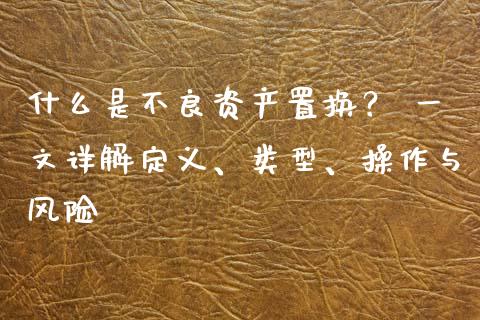 什么是不良资产置换？ 一
文详解定义、类型、操作与
风险